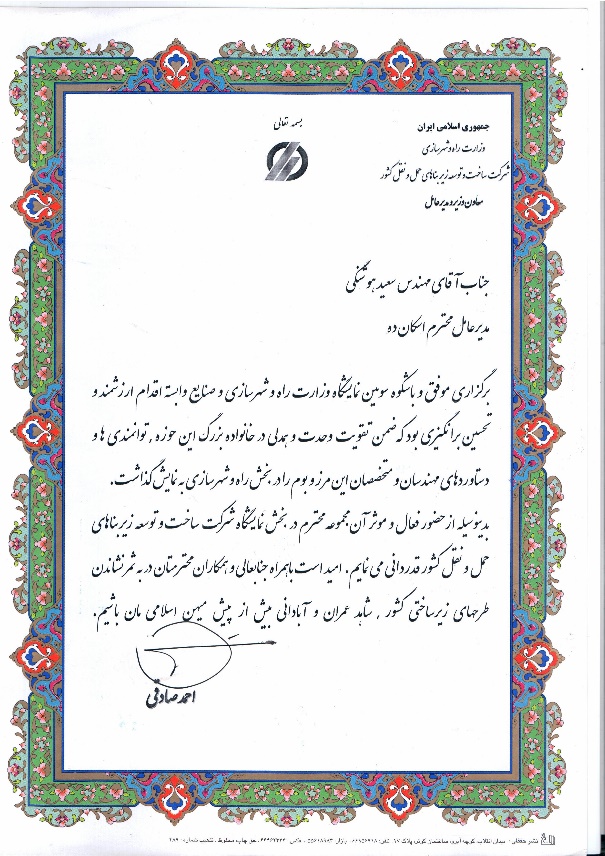 بسمه تعالی
جمهوری اسلامی ایران
وزارت راه و شهرسازی
شرکت ساخت و توسعه زیربناهای حمل و نقل کشور
معاون وزیر و مدیرعامل
جناب آقای مهندس سعید هوشنگی
مدیرعامل محترم اسکان ده
برگزاری موفق و باشکوه سومین نمایشگاه وزارت راه و شهرسازی و صنایع وابسته اقدام ارزشمند و
تحسین برانگیزی بود که ضمن تقویت وحدت و همدلی در خانواده بزرگ این حوزه , توانمندی ها و
دستاوردهای مهندسان و متخصصان این مرز و بوم را در بخش راه و شهرسازی به نمایش گذاشت.
بدینوسیله از حضور فعال و موثر آن مجموعه محترم در بخش نمایشگاه شرکت ساخت و توسعه زیربناهای
حمل و نقل کشور قدردانی می نمایم. امید است با همراه جنابعالی و همکاران محترمتان در به ثمر نشاندن
طرحهای زیرساختی کشور , شاهد عمران و آبادانی بیش از پیش میهن اسلامی مان باشیم.
احمد صادقی